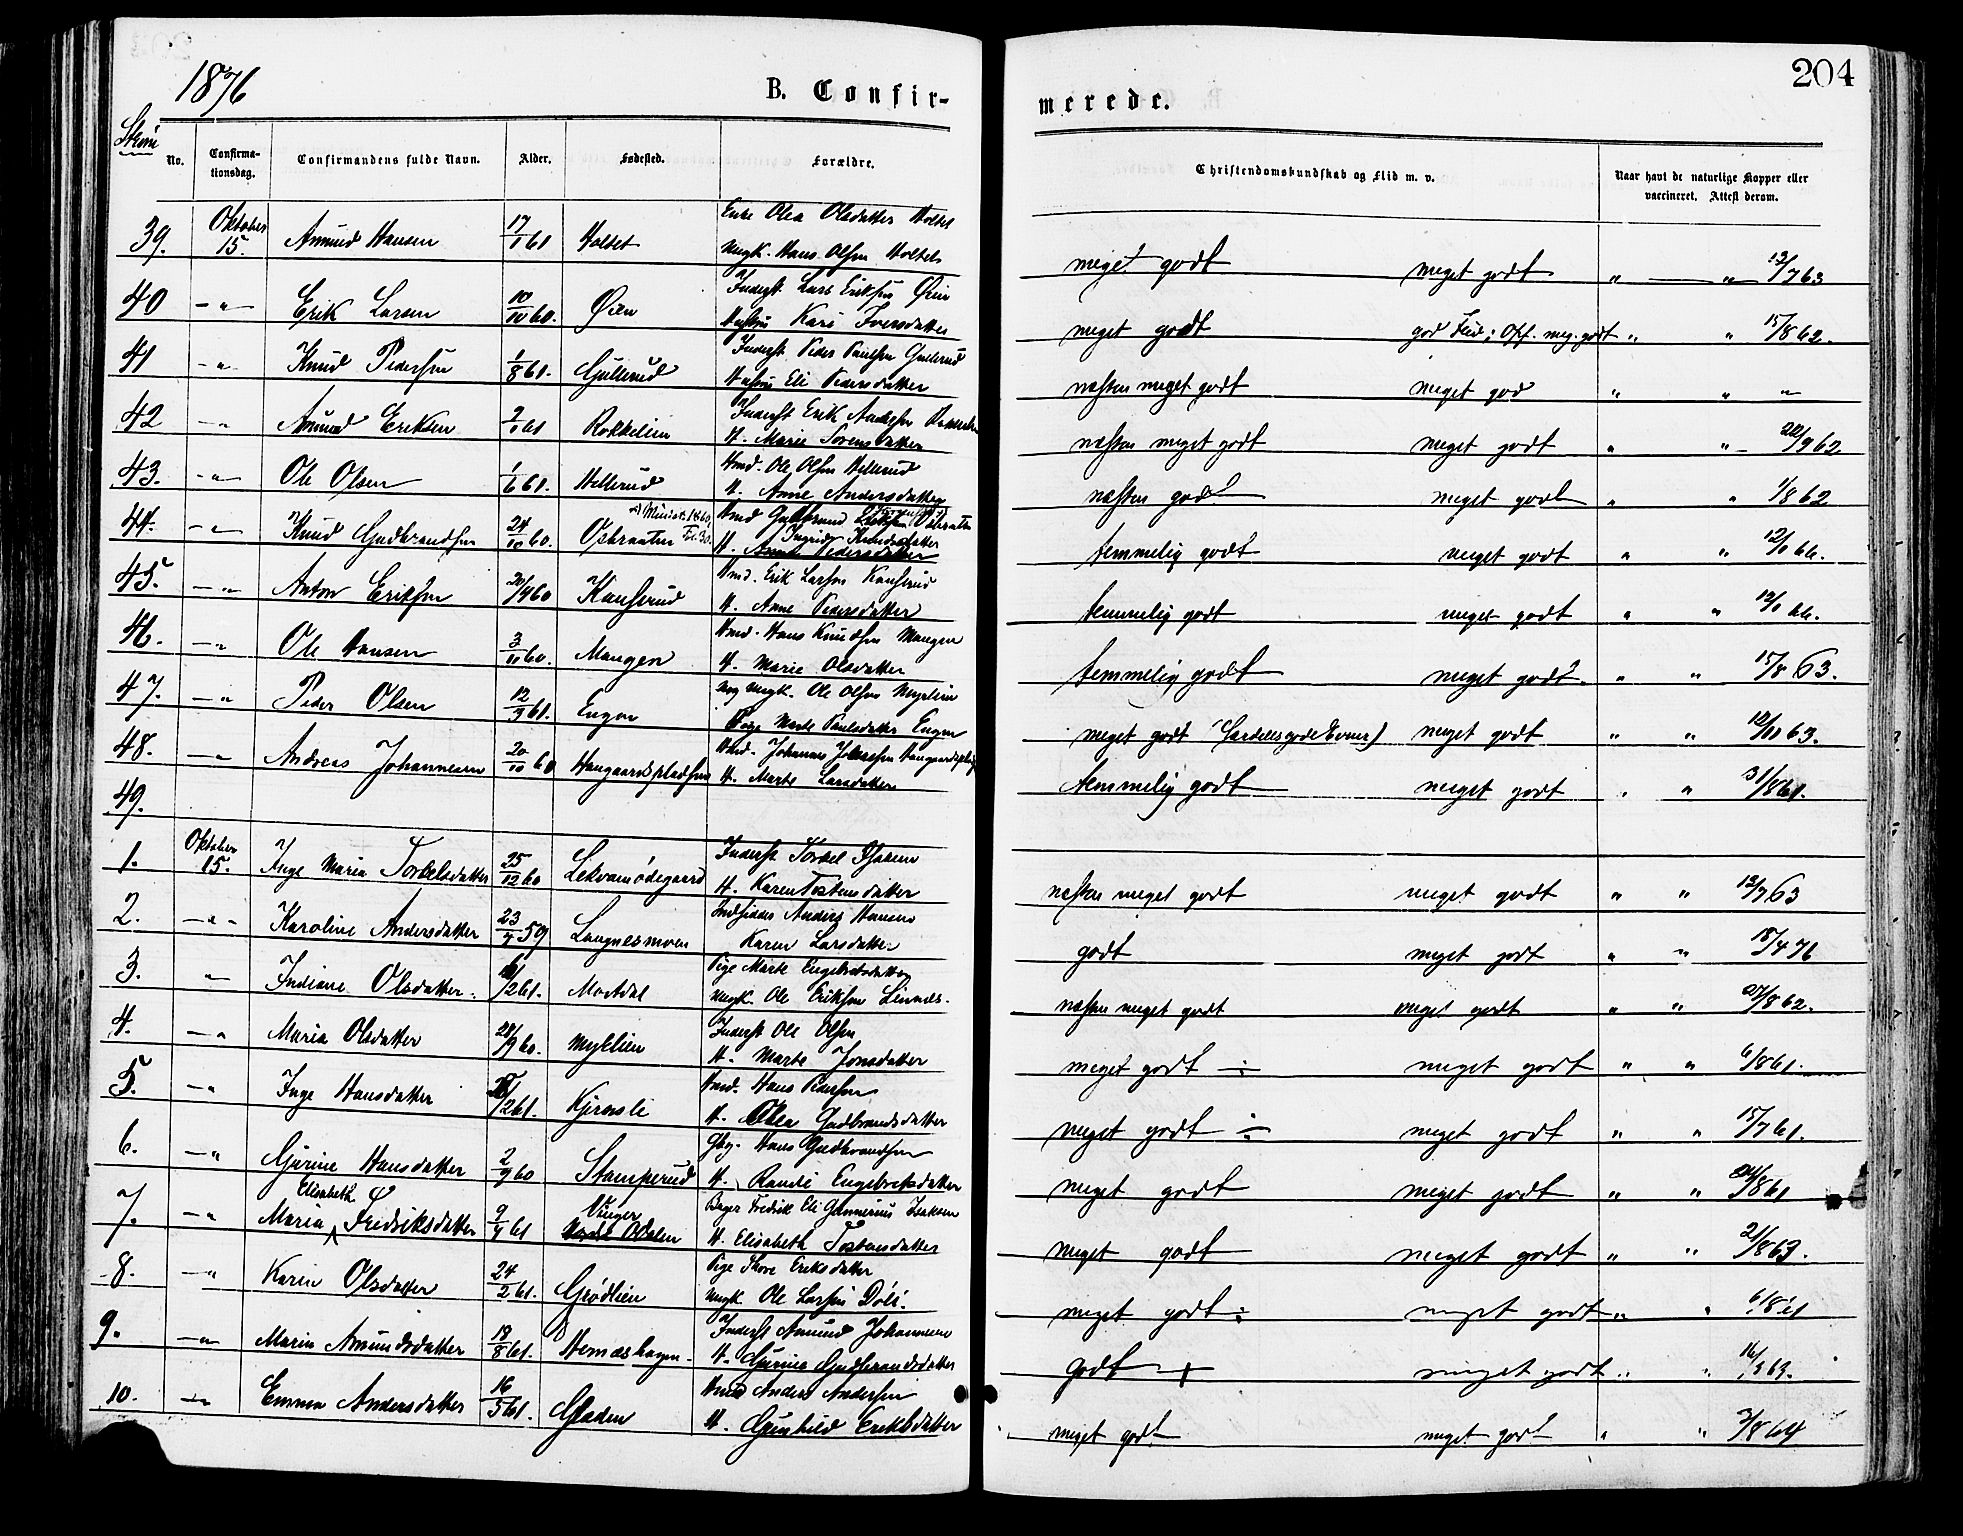 1876
B. Confir-
merede.
204
No.
Confirma-
tionsdag.
Confirmandens fulde Navn.
Alder.
Fødested.
Forældre.
Christendomskundskab og Flid m. v.
Naar havt de naturlige Kopper eller
vaccineret. Attest derom.
Enke Olea Olsdatter Holtet
39. Oktober 15. Amund Hansen 17/1 61 Holtet Ungk. Hans Olsen Holtet meget godt meget godt " " 12/7 63
Inderst Lars Eriksen Øien
40 - " - Erik Larsen 10/10 60. Øien Hustru Kari Iversdatter meget godt god Flid; Opf. meg. godt " " 15/8 62.
Inderst Peder Paulsen Gullerud
41 - " - Knud Pedersen 1/8 61. Gullerud Hustru Eli Pedersdatter næsten meget godt meget god " " "
Inderst Erik Andersen
42 - " - Amund Eriksen 2/1 61 Rokkelien H. Marie Sorensdatter næsten meget godt meget godt " " 20/9 62.
Hmd. Ole Olsen Hellerud
43. - " - Ole Olsen 1/6 61. Hellerud H. Anne Andersdatter næsten godt meget godt " " 1/8 62
Hmd Gudbrand Osbraaten
Ingrid Knudsdatter
44. - " - Knud Gudbrandsen 24/10 60. Osbraaten H. Anne Pedersdatter temmelig godt meget godt " " 12/1 66.
Hmd. Erik Larsen Kanserud
45. - " - Anton Eriksen 20/9 60 Kanserud H. Anne Pedersdatter temmelig godt meget godt " " 12/1 66.
Hmd. Hans Knudsen Mangen
46. - " - Ole Hansen 3/10 60. Mangen H. Marie Olsdatter temmelig godt meget godt. " " 15/8 63.
Ungk. Ole Olsen Myrlien
47. - " - Peder Olsen 12/9 61. Engen Pige Marte Paulsdatter Engen meget godt (særdeles gode Evner) meget godt " " 12/10 63.
Hmd. Johannes
48. - " - Andreas Johannesen 20/10 60 Haugaardspladsen H. Marte Larsdatter temmelig godt meget godt " " 31/8 61.
49.
Inderst Torkel
1. Oktober 15. Inge Maria Torkelsdatter 25/12 60 Lekvamødegaard H. Karen Tostensdatter næsten meget godt meget godt " " 12/7 63
Indsidder Anders Hansen
2. - " - Karoline Andersdatter 23/4 59 Langnesmoen Karen Larsdatter godt meget godt " " 18/4 76
Pige Marte Engebretsdatter
3. " Indiane Olsdatter. /2 61. Mordal Ungk. Ole Eriksen næsten meget godt meget godt " " 27/8 62.
Inderst Ole Olsen
4. - " Maria Olsdatter 28/9 60. Myklien H. Marte Jonsdatter meget godt ÷ meget godt " " 6/8 61.
Hmd. Hans Paulsen
5. - " Inge Hansdatter /2 61. Kjensli H. Olea Gudbrandsdatter meget godt ÷ meget godt " " 15/7 61.
Gbg. Hans Gudbrandsen
6. - " Gurine Hansdatter 2/9 60 Stamperud H. Randi Engebretsdatter meget godt meget godt " " 24/8 61
Elisabeth Vinger Bager Fredrik Eli Gunnerius Isaksen
7. - " Maria Fredriksdatter 9/4 61 Nordre Odalen H. Elisabeth Tostensdatter meget godt meget godt " " 21/8 63.
Pige Thore Eriksdatter
8. - " Karen Olsdatter 24/2 61. Grødlien Ungk. Ole Larsen Døli. meget godt ÷ meget godt " " 6/8 61
Inderst Amund Johannesen
9. - " Maren Amundsdatter 18/8 61. Hernæshagen. H. Gurine Gudbrandsdatter godt + meget godt " " 16/ 63.
Hmd Anders Andersen
10. - " Emma Andersdatter 16/5 61. Gladen H. Gunhild Eriksdatter meget godt meget godt " " 3/8 64